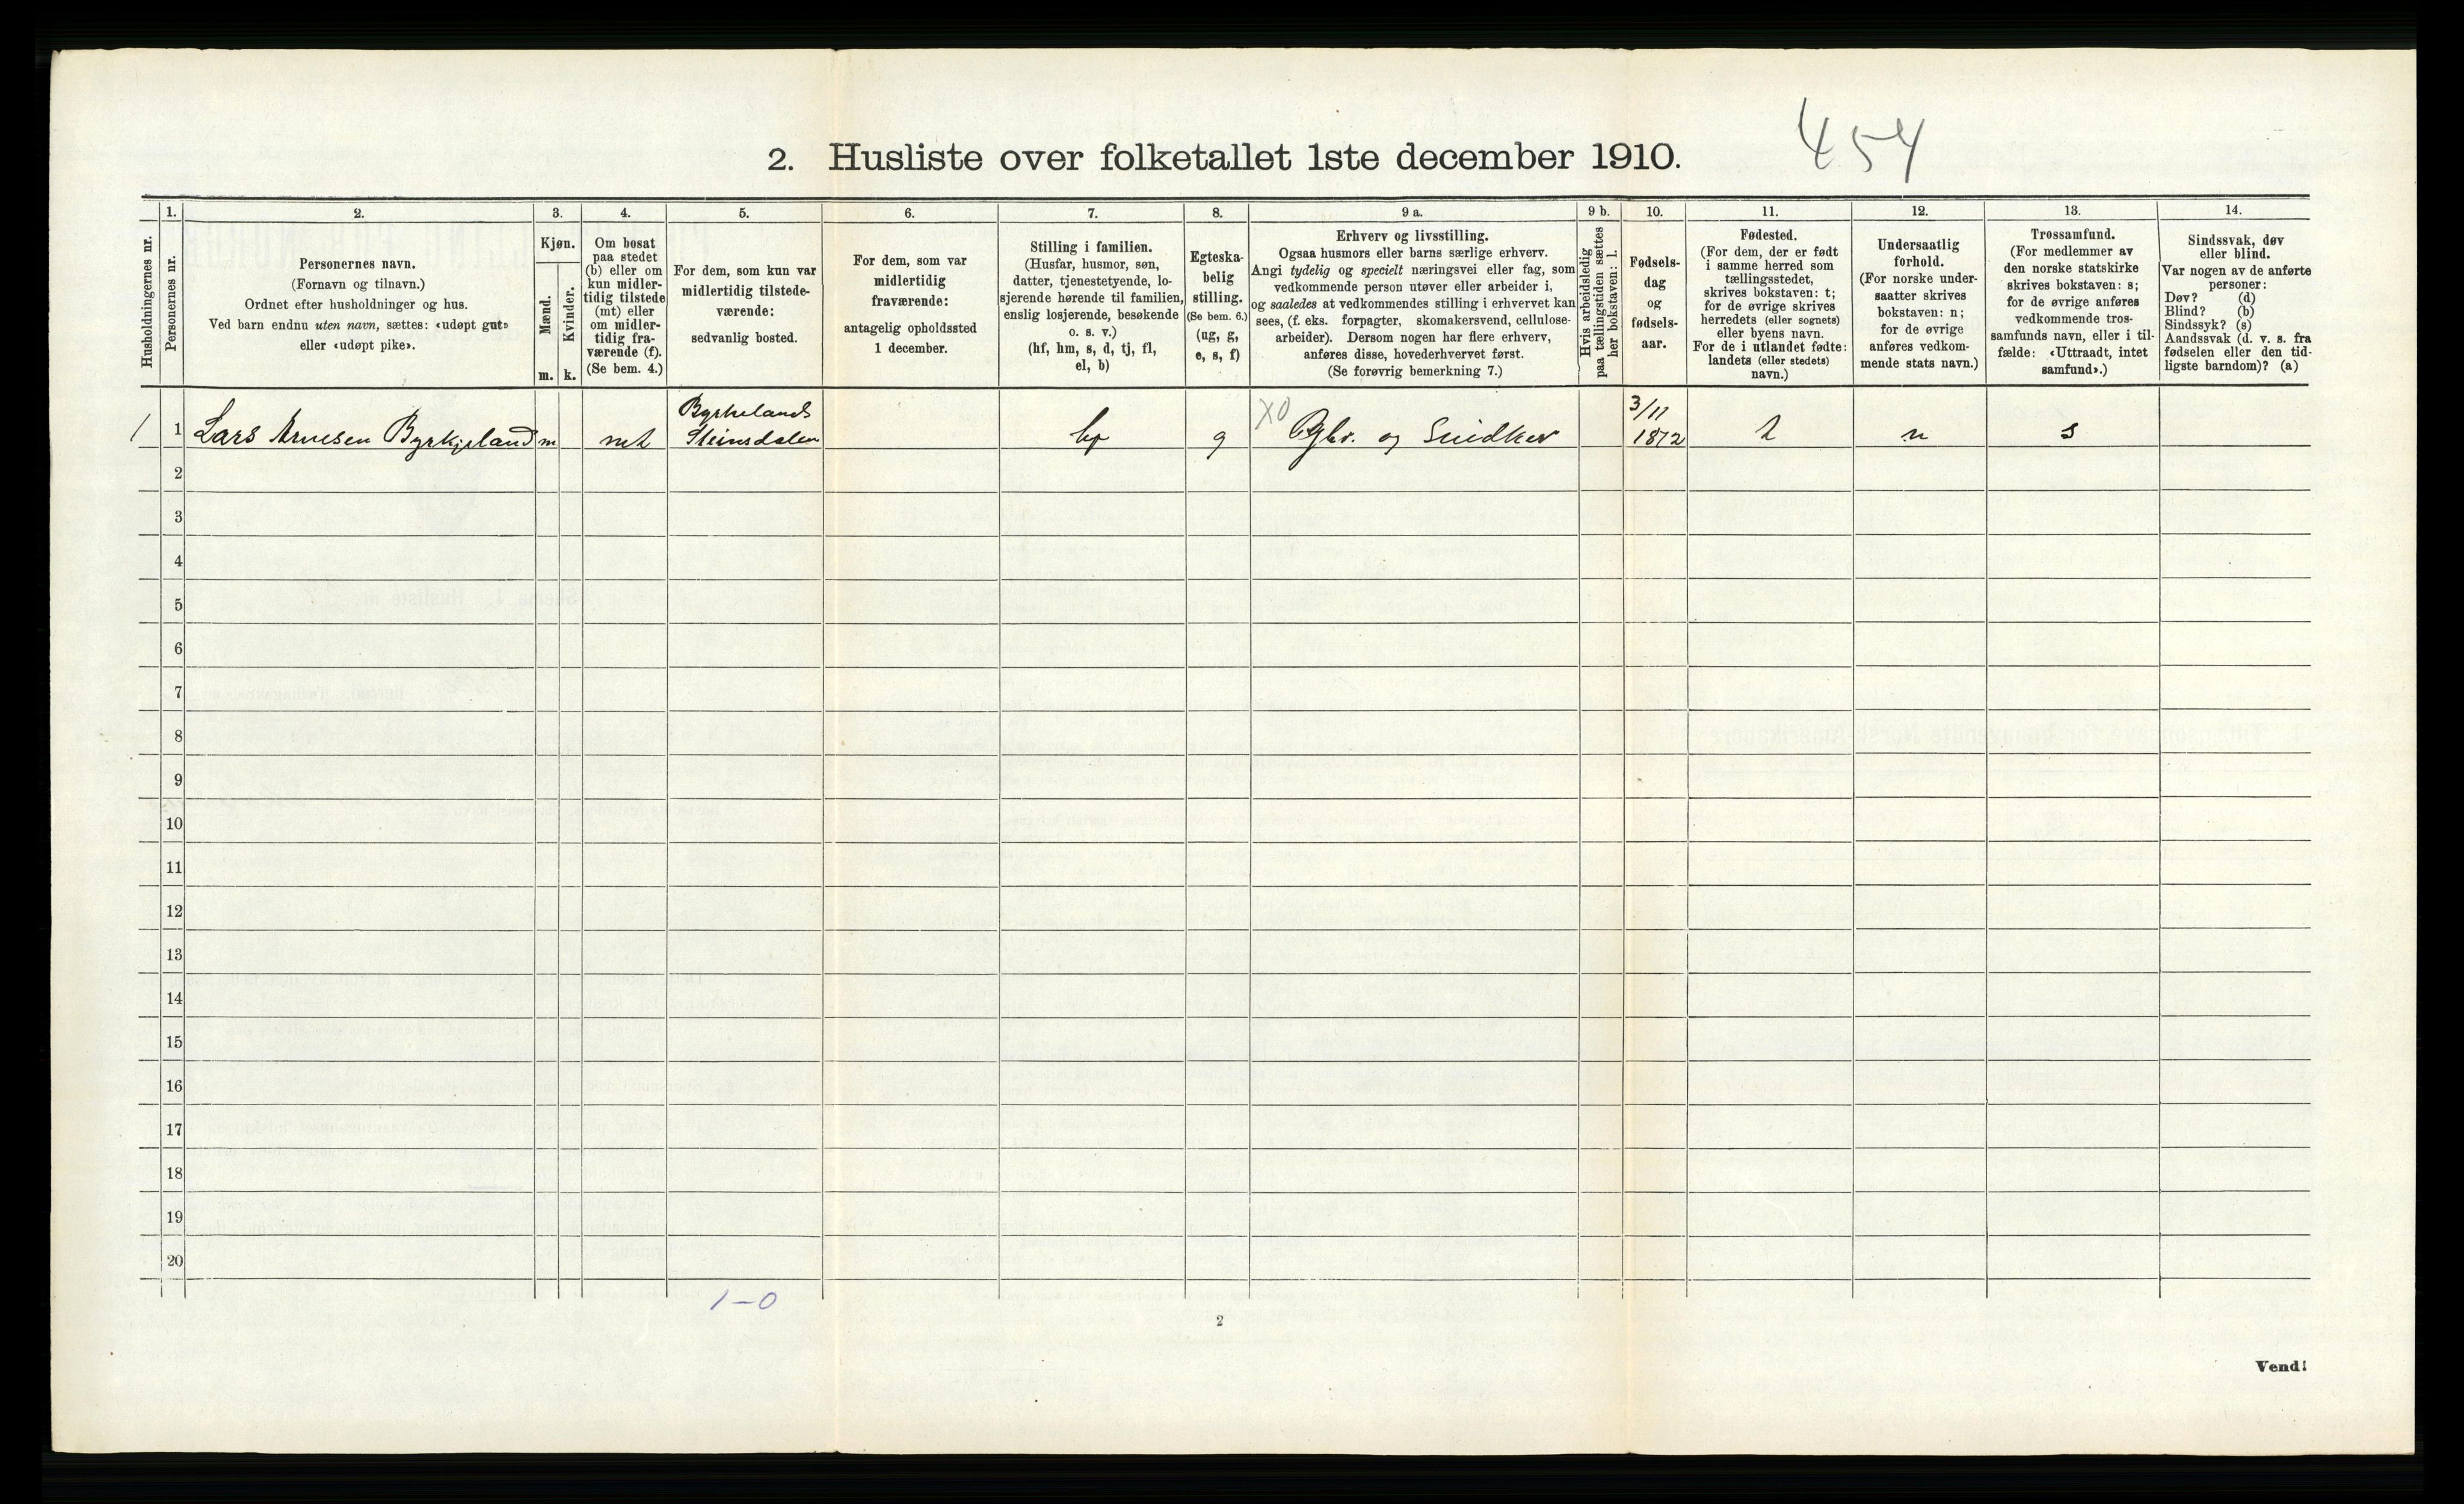 454
2. Husliste over folketallet 1ste december 1910.
Husholdningernes nr.
1.
Personernes nr.
2.
Personernes navn.
(Fornavn og tilnavn.)
Ordnet efter husholdninger og hus.
Ved barn endnu uten navn, sættes: «udøpt gut»
eller «udøpt pike».
3.
Kjøn.
Mænd.
Kvinder.
m. k.
4.
Om bosat
paa stedet
(b) eller om
kun midler-
tidig tilstede
(mt) eller
om midler-
tidig fra-
værende (f).
(Se bem. 4.)
5.
For dem, som kun var
midlertidig tilstede-
værende:
sedvanlig bosted.
6.
For dem, som var
midlertidig
fraværende:
antagelig opholdssted
1 december.
7.
Stilling i familien.
(Husfar, husmor, søn,
datter, tjenestetyende, lo-
sjerende hørende til familien,
enslig losjerende, besøkende
o. s. v.)
(hf, hm, s, d, tj, fl,
el, b)
8.
Egteska-
belig
stilling.
(Se bem. 6.)
(ug, g,
e, s, f)
9 a.
Erhverv og livsstilling.
Ogsaa husmors eller barns særlige erhverv.
Angi tydelig og specielt næringsvei eller fag, som
vedkommende person utøver eller arbeider i,
og saaledes at vedkommendes stilling i erhvervet kan
sees, (f. eks. forpagter, skomakersvend, cellulose-
arbeider). Dersom nogen har flere erhverv,
anføres disse, hovederhvervet først.
(Se forøvrig bemerkning 7.)
9 b.
Hvis arbeidsledig
paa tællingstiden sættes
her bokstaven: l.
10.
Fødsels-
dag
og
fødsels-
aar.
11.
Fødested.
(For dem, der er født
i samme herred som
tællingsstedet,
skrives bokstaven: t;
for de øvrige skrives
herredets (eller sognets)
eller byens navn.
For de i utlandet fødte:
landets (eller stedets)
navn.)
12.
Undersaatlig
forhold.
(For norske under-
saatter skrives
bokstaven: n;
for de øvrige
anføres vedkom-
mende stats navn.)
13.
Trossamfund.
(For medlemmer av
den norske statskirke
skrives bokstaven: s;
for de øvrige anføres
vedkommende tros-
samfunds navn, eller i til-
fælde: «Uttraadt, intet
samfund».)
14.
Sindssvak, døv
eller blind.
Var nogen av de anførte
personer:
Døv? (d)
Blind? (b)
Sindssyk? (s)
Aandssvak (d. v. s. fra
fødselen eller den tid-
ligste barndom)? (a)
Byrkelands X0 3/11
1 1 Lars Arnesen Byrkjeland m mt Steinsdalen g Gbr. og Snidker 1872 t n s
2
3
4
5
6
7
8
9
10
11
12
13
14
15
16
17
18
19
20
1-0
2
Vend!